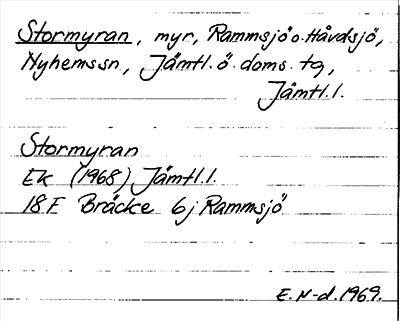 Stormyran, myr, Rammsjö o. Håvdsjö,
Nyhemssn., Jämtl. ö. doms. tg,
Jämtl.l.
Stormyran
Ek (1968) Jämtl.l.
18F Bräcke 6j Rammsjö
E.N-d. 1969.